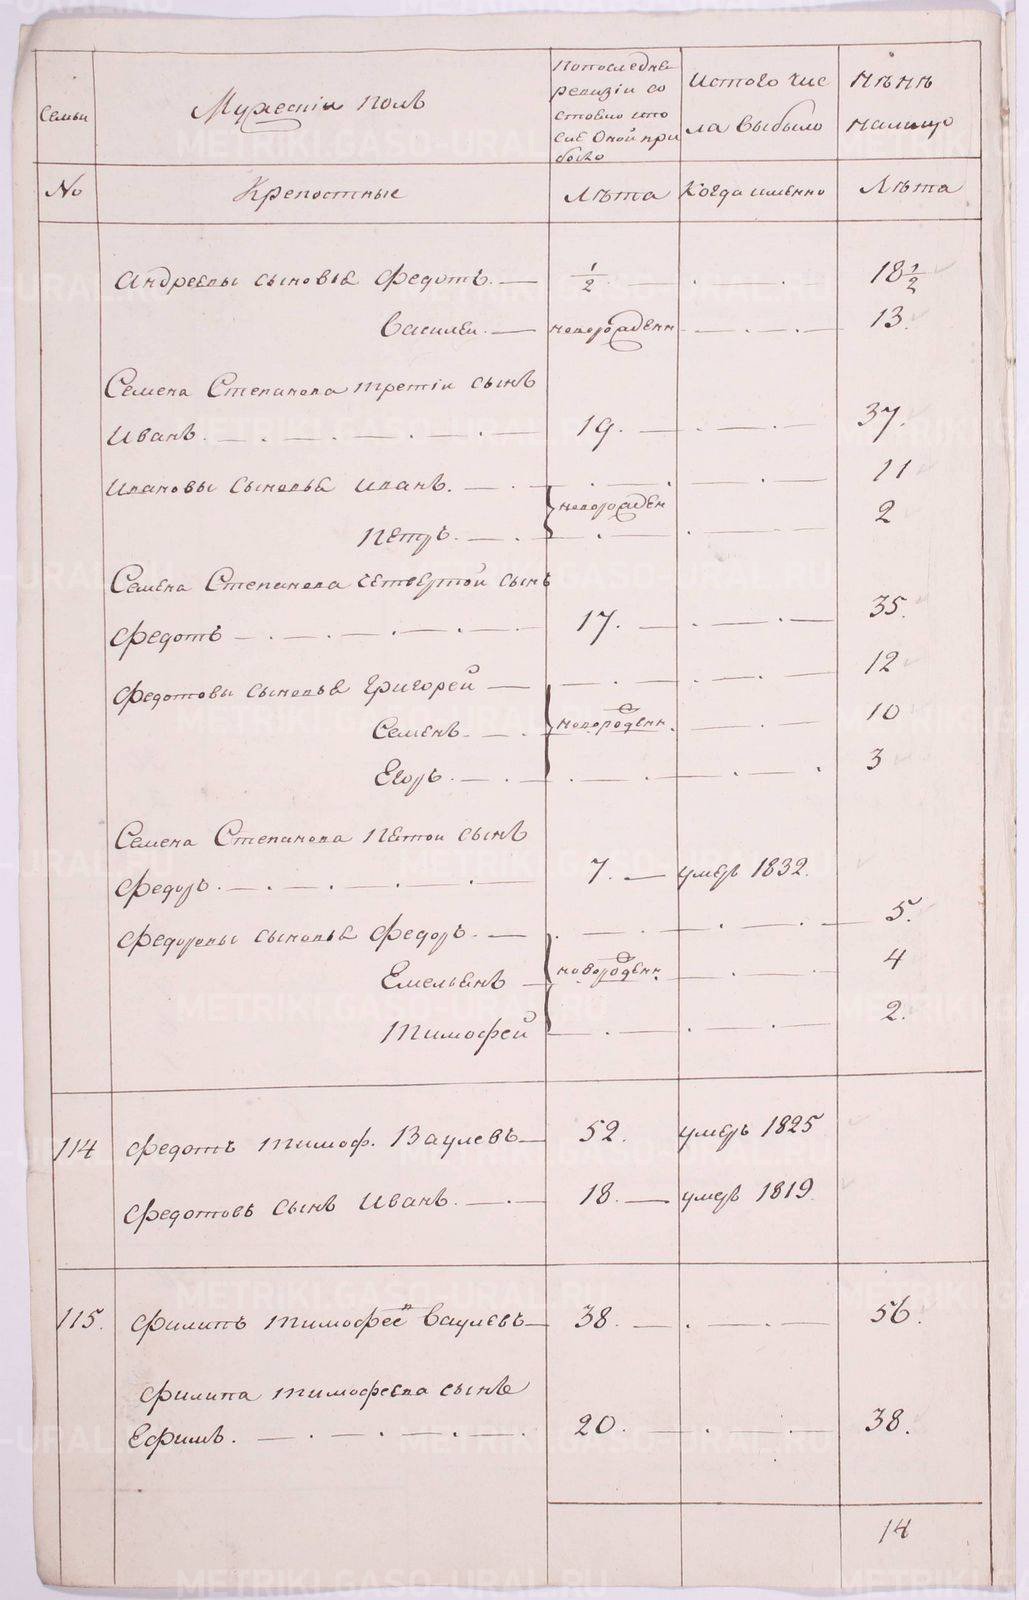 Семьи
Мужескiи полъ
Попоследне
ревизiи со
стояло ипо
сле Оной при
было
Истого чис
ла выбыло
нынъ
налицо
No
Крепостные
Лѣта
Когда именно
Лѣта
Андреевы сыновья Федотъ. — 1/2 18 1/2
Василеи. — новорожденн 13.
Семена Степанова третiи сынъ
Иванъ. 19. 37.
Ивановы сыновья Иванъ. 11
новорожден
Петръ. 2
Семена Степанова четвертой сынъ
Федотъ 17. 35.
Федотовы сыновья Григорей 12
Семенъ. новорожденн. 10
Егоръ. 3
Семена Степанова пятои сынъ
Федоръ. 7. умеръ 1832.
Федоровы сыновья Федоръ. 5.
Емельянъ новорожденн. 4
Тимофей 2.
114 Федотъ Тимоф. Ваулевъ 52. умеръ 1825
Федотовъ сынъ Иванъ. 18. умеръ 1819.
115. Филипъ Тимофеевъ Ваулевъ 38. 56.
Филипа Тимофеева сынъ
Ефимъ. 20. 38.
14
METRIKI.GASO-URAL.RU